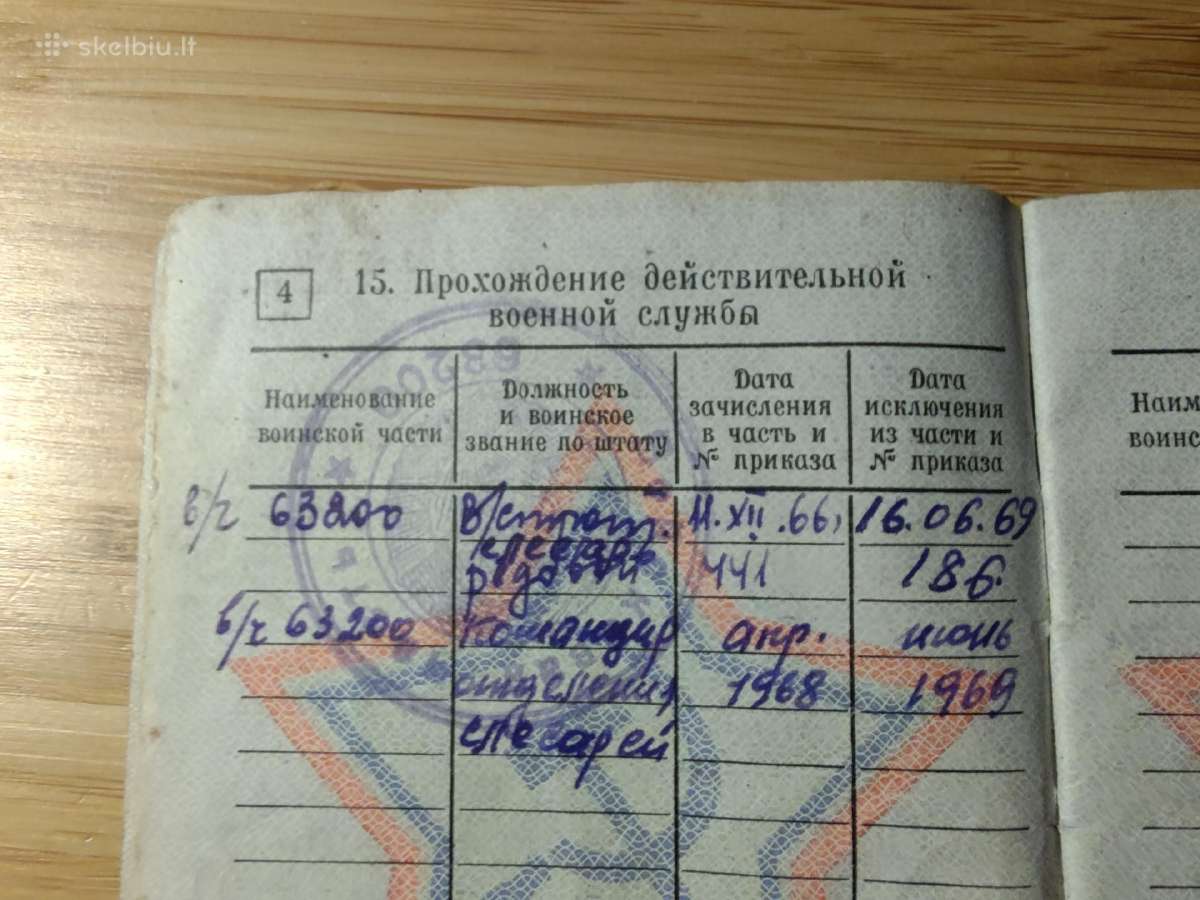 skelbiu.lt
4
15. Прохождение действительной
военной службы
Наименование
воинской части
Должность
и воинское
звание по штату
Дата
зачисления
в часть и
№ приказа
Дата
исключения
из части и
№ приказа
Наим
воинс
в/ч 63200
11.XII.66,
16.06.69
слесарь
рядовой
441
186.
в/ч 63200
Командир
апр.
июнь
отделения
1968
1969
слесарей
63200